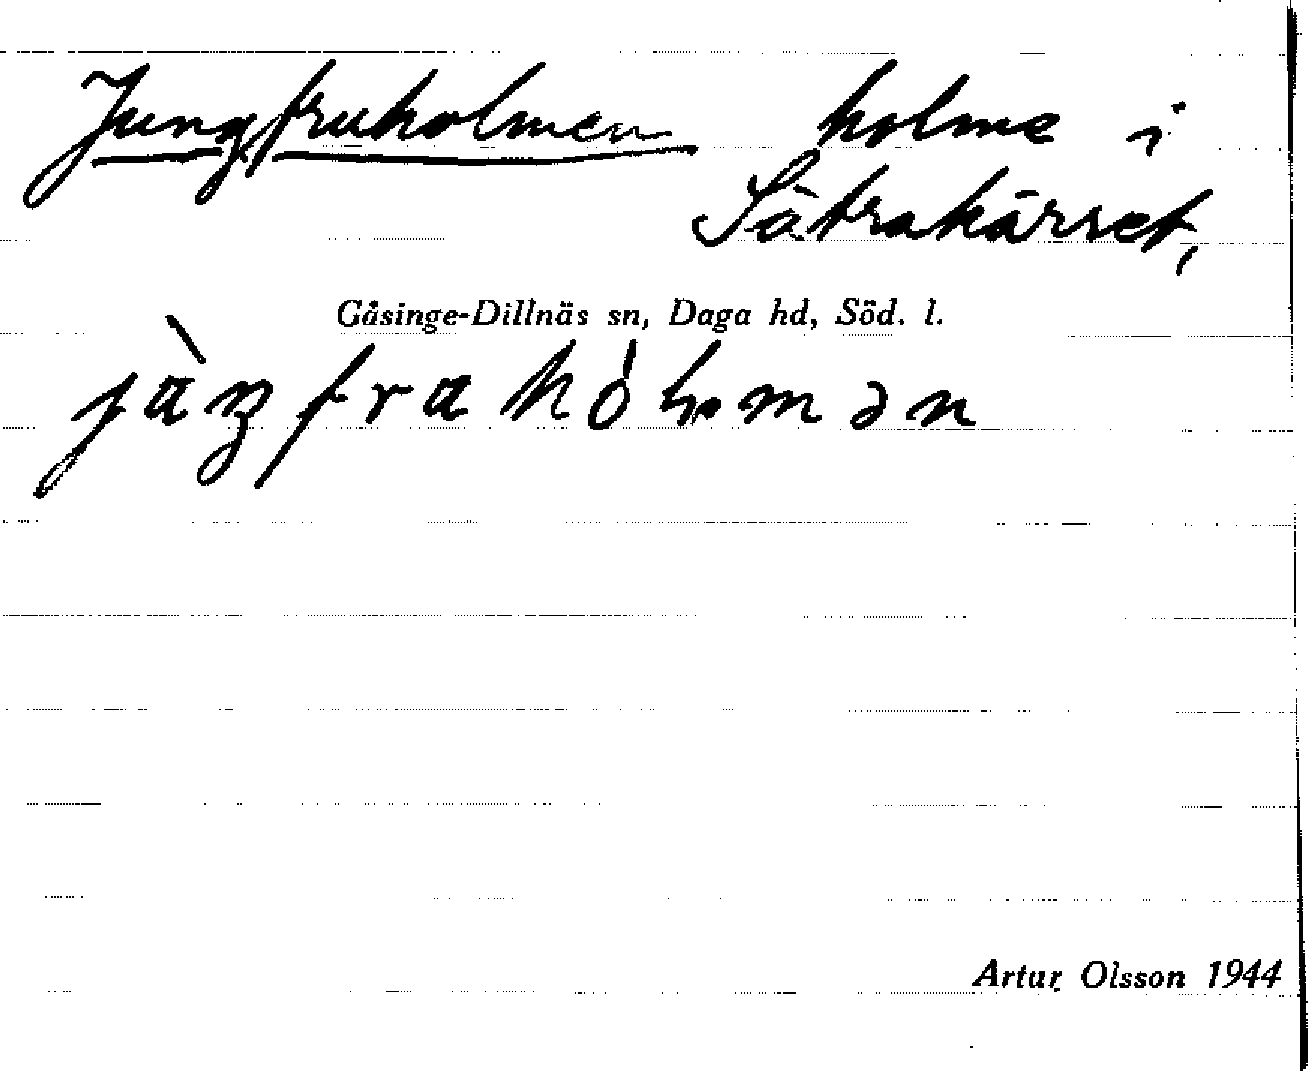 Jungfruholmen holme i
Sätrakärret,
Gåsinge-Dillnäs sn, Daga hd, Söd. l.
Artur Olsson 1944